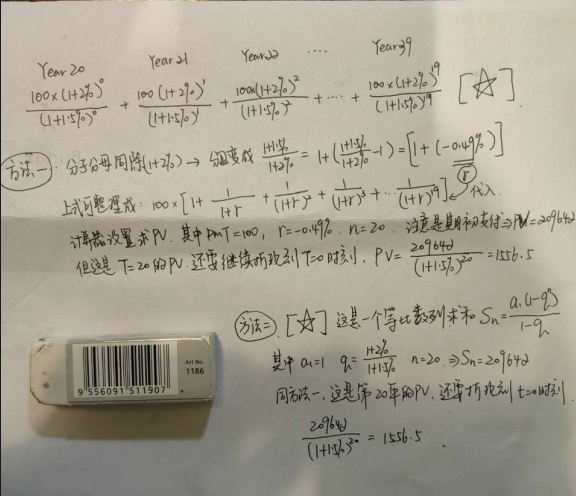 Year 20 Year 21 Year 22 .... Year 39
100×(1+2%)^0/(1+1.5%)^0 + 100(1+2%)^1/(1+1.5%)^1 + 100×(1+2%)^2/(1+1.5%)^2 + ... + 100×(1+2%)^19/(1+1.5%)^19 [☆].
方法一: 分子分母同除(1+2%) → 分母变成 (1+1.5%)/(1+2%) = 1+((1+1.5%)/(1+2%)-1) = [1+(-0.49%)]
r
上式可整理成: 100×[1+1/(1+r)+1/(1+r)^2+1/(1+r)^3+...1/(1+r)^19] 代入.
计算器设置求PV. 其中PMT=100, r=-0.49%. n=20. 注意是期初支付⇒PV=2096.42
但这是T=20的PV. 还要继续折现到T=0时刻, PV=2096.42/(1+1.5%)^20=1556.5
方法二. [☆] 这是一个等比数列求和. Sn=a1(1-q^n)/(1-q)
其中 a1=1 q=(1+2%)/(1+1.5%) n=20. ⇒Sn=2096.42
同方法一, 这是第20年的PV. 还要折现到t=0时刻.
2096.42/(1+1.5%)^20 = 1556.5
Art No.
1186
9 556091 511907